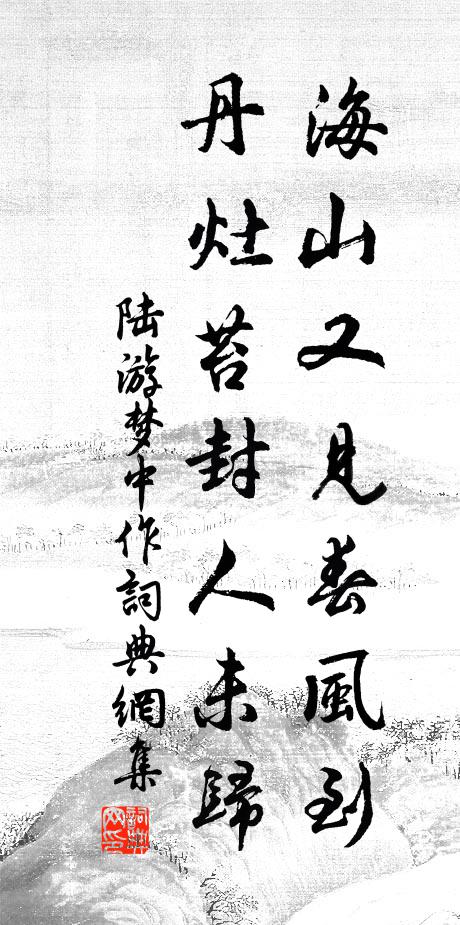 海山又見春風到
丹灶苔封人未歸
陆游梦中作詞典網集